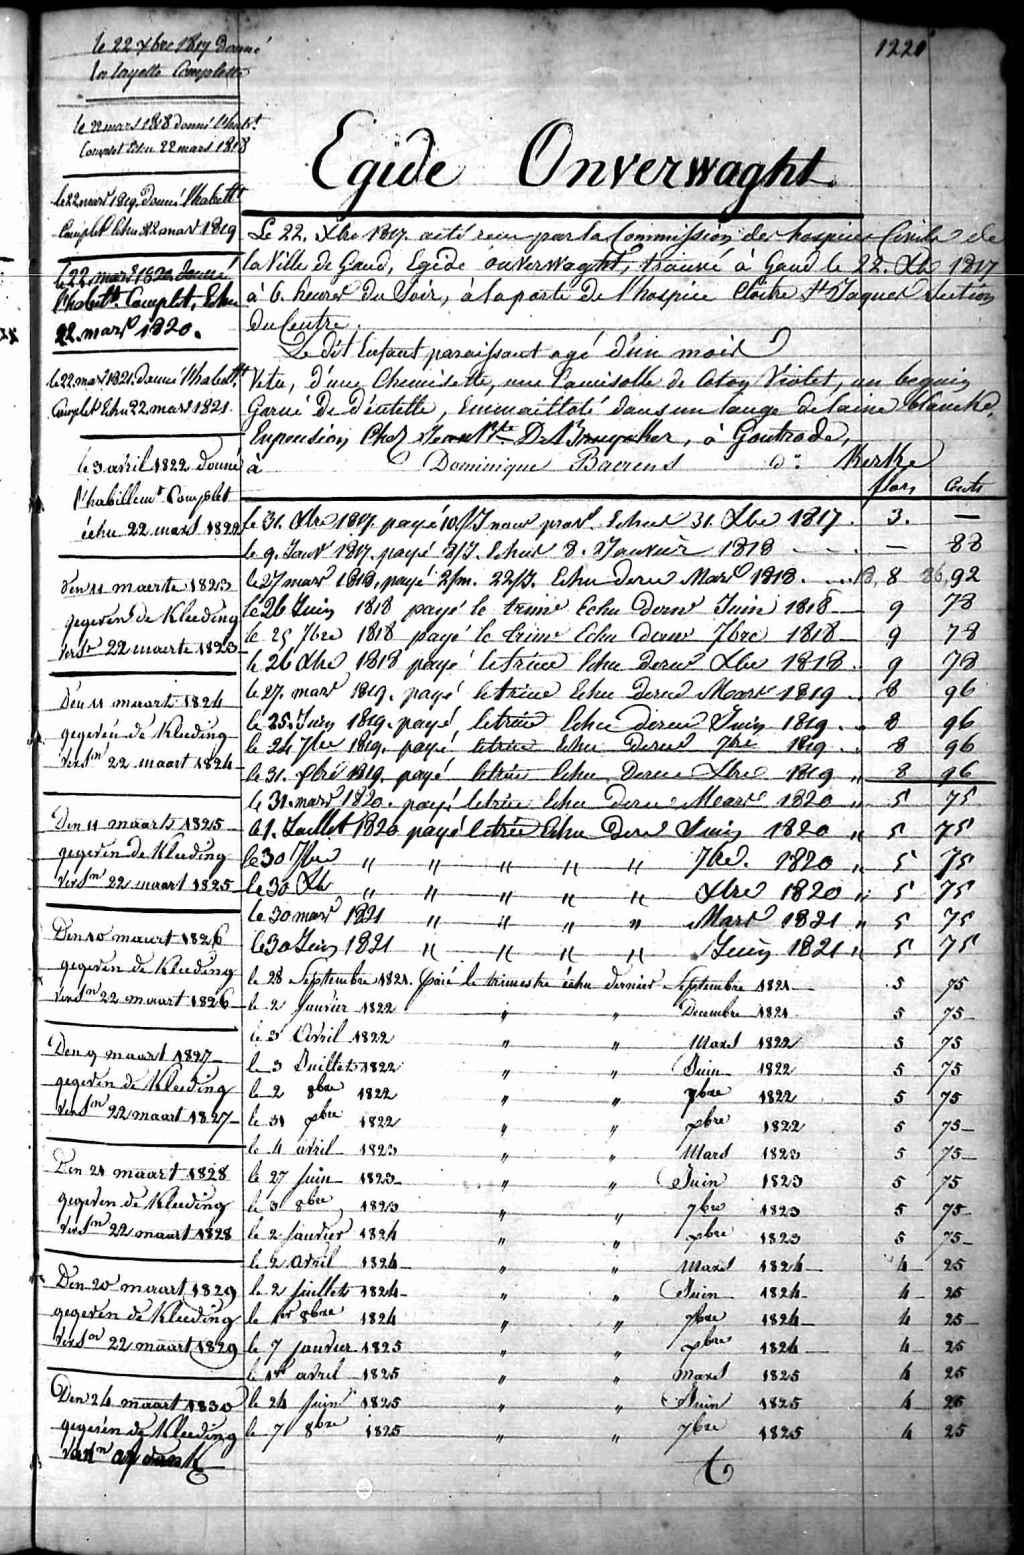 le 22 Xbre 1817 Donné
la layette Complette
le 22 mars 1818 donné l'habt.
Complet Echu 22 mars 1818
le 22 mars 1819. donné l'habellt
Complet Echu 22 mars 1819
le 22 mars 1820. donné
l'habt. Complet, Echu
22. mars 1820.
le 22 mars 1821. donné l'habellt.
Complet Echu 22. mars 1821.
le 3 avril 1822 donné
l'habillemt. Complet
échu 22 mars 1822
Den 11 maerte 1823
gegeven de Kleeding
Versn 22 maerte 1823
Den 11 maart 1824
gegevén de Kleeding
Versn 22 maart 1824
Den 11 maart 1825
gegeven de Kleeding
Versn 22 maart 1825
Den 10 maart 1826
gegeven de Kleeding
Versn 22 maart 1826
Den 9 maart 1827
gegeven de Kleeding
Versn 22 maart 1827
Den 21 maart 1828
gegeven de Kleeding
Versn 22 maart 1828
Den 20 maart 1829
gegeven de Kleeding
Versn 22 maart 1829
Den 24 maart 1830
gegeven de Kleeding
1221
Egide Onverwaght.
Le 22. Xbre 1817. acté reçu par la Commission des hospices Civils de
la Ville de Gand, Egide onverwaght, trouvé à Gand le 22. Xbre 1817
à 6. heures du Soir, à la porte de l'hospice Cloitre St. Jaques Section
du Centre.
Le dit Enfant paraissant agé d'un mois
Vetu, d'une Chemisette, une Camisolle de Coton Violet, un beguin
Garni de Dentelle, Emmailloté dans un lange de laine blanche,
En pension Chez Jean Bte De Bruycker, à Gontrode,
à Dominique Baerens do. Kerke
flors Cents
le 31. Xbre 1817. payé 10. J Echus 31. Xbre 1817. 3. —
le 9. Janvr 1817. payé 8 J. Echus 8. Janvier 1818 — 88
le 27 mars 1818, payé 2 m. 22 J. Echu derer Mars 1818. 8 92
le 26 Juin 1818 payé le trime Echu derer Juin 1818 — 9 78
le 25 7bre 1818 payé le trime Echu derer 7bre 1818 — 9 78
le 26 Xbre 1818 payé le trime Echu derer Xbre 1818. 9 78
le 27. mars 1819. payé le trime Echu derer Mars 1819. 8 96
le 25. Juin 1819. payé le trime Echu derer Juin 1819. 8 96
le 24 7bre 1819. payé le trime Echu derer 7bre 1819. 8 96
le 31. Xbre 1819. payé le trime Echu derer Xbre 1819 " 8 96
le 31. mars 1820. payé le trime Echu derer Mars 1820 " 5 75
le 1. Juillet 1820 payé le trime Echu derer Juin 1820 " 5 75
le 30 7bre " " " " " 7bre. 1820 " 5 75
le 30 Xbre " " " " " Xbre 1820 " 5 75
le 30 mars 1821 " " " " Mars 1821 " 5 75
le 30 Juin 1821 " " " " " Juin 1821 " 5 75
le 28 Septembre 1821. Payé le trimestre échu dernier Septembre 1821 — 5 75
le 2 Janvier 1822 " " Decembre 1821 5 75
le 3 Avril 1822 " " Mars 1822 5 75
le 3 Juillet 1822 " " Juin 1822 5 75
le 2 8bre 1822 " " 7bre 1822 5 75
le 31 Xbre 1822 " " Xbre 1822 5 75
le 4 avril 1823 " " Mars 1823 5 75
le 27 juin 1823 " " Juin 1823 5 75
le 3 8bre 1823 " " 7bre 1823 5 75
le 2 janvier 1824 " " Xbre 1823 5 75
le 2 avril 1824 " " Mars 1824 4 25
le 2 juillet 1824 " " Juin 1824 4 25
le 1er 8bre 1824 " " 7bre 1824 4 25
le 7 janvier 1825 " " Xbre 1824 4 25
le 1er avril 1825 " " Mars 1825 4 25
le 24 juin 1825 " " Juin 1825 4 25
le 7 8bre 1825 " " 7bre 1825 4 25